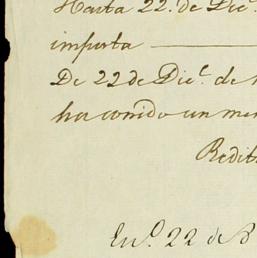 Hasta 22. de Dic.
importa
De 22 de Dic.e de
ha corrido un me
Redit
En.o 22 de